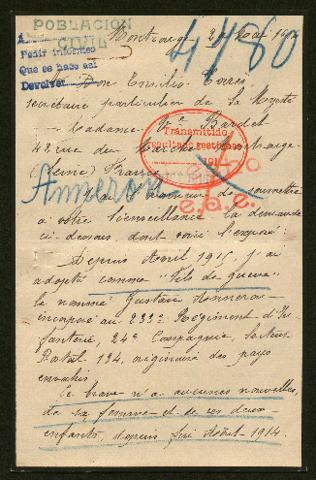 POBLACION
CIVIL
Pedir informes
Que se haga así
Devolver
4480
Montargis 2 Août 191
Mr Don Emilio
secrétaire particulier de Sa Majesté
Madame Vve Bardet
42 rue du
France
Transmitido
resultado gestiones
191
Anneron
l'honneur de soumettre
à votre bienveillance la demande
ci-dessous dont voici l'exposé :
Depuis Avril 1915, j'ai
adopté comme "fils de guerre"
le nommé Gustave Anneron
incorporé au 233e Régiment d'In-
fanterie, 24e Compagnie, Secteur
Postal 194, originaire des pays
envahis
Ce brave n'a aucunes nouvelles,
de sa femme et de ses deux
enfants, depuis fin Août 1914.